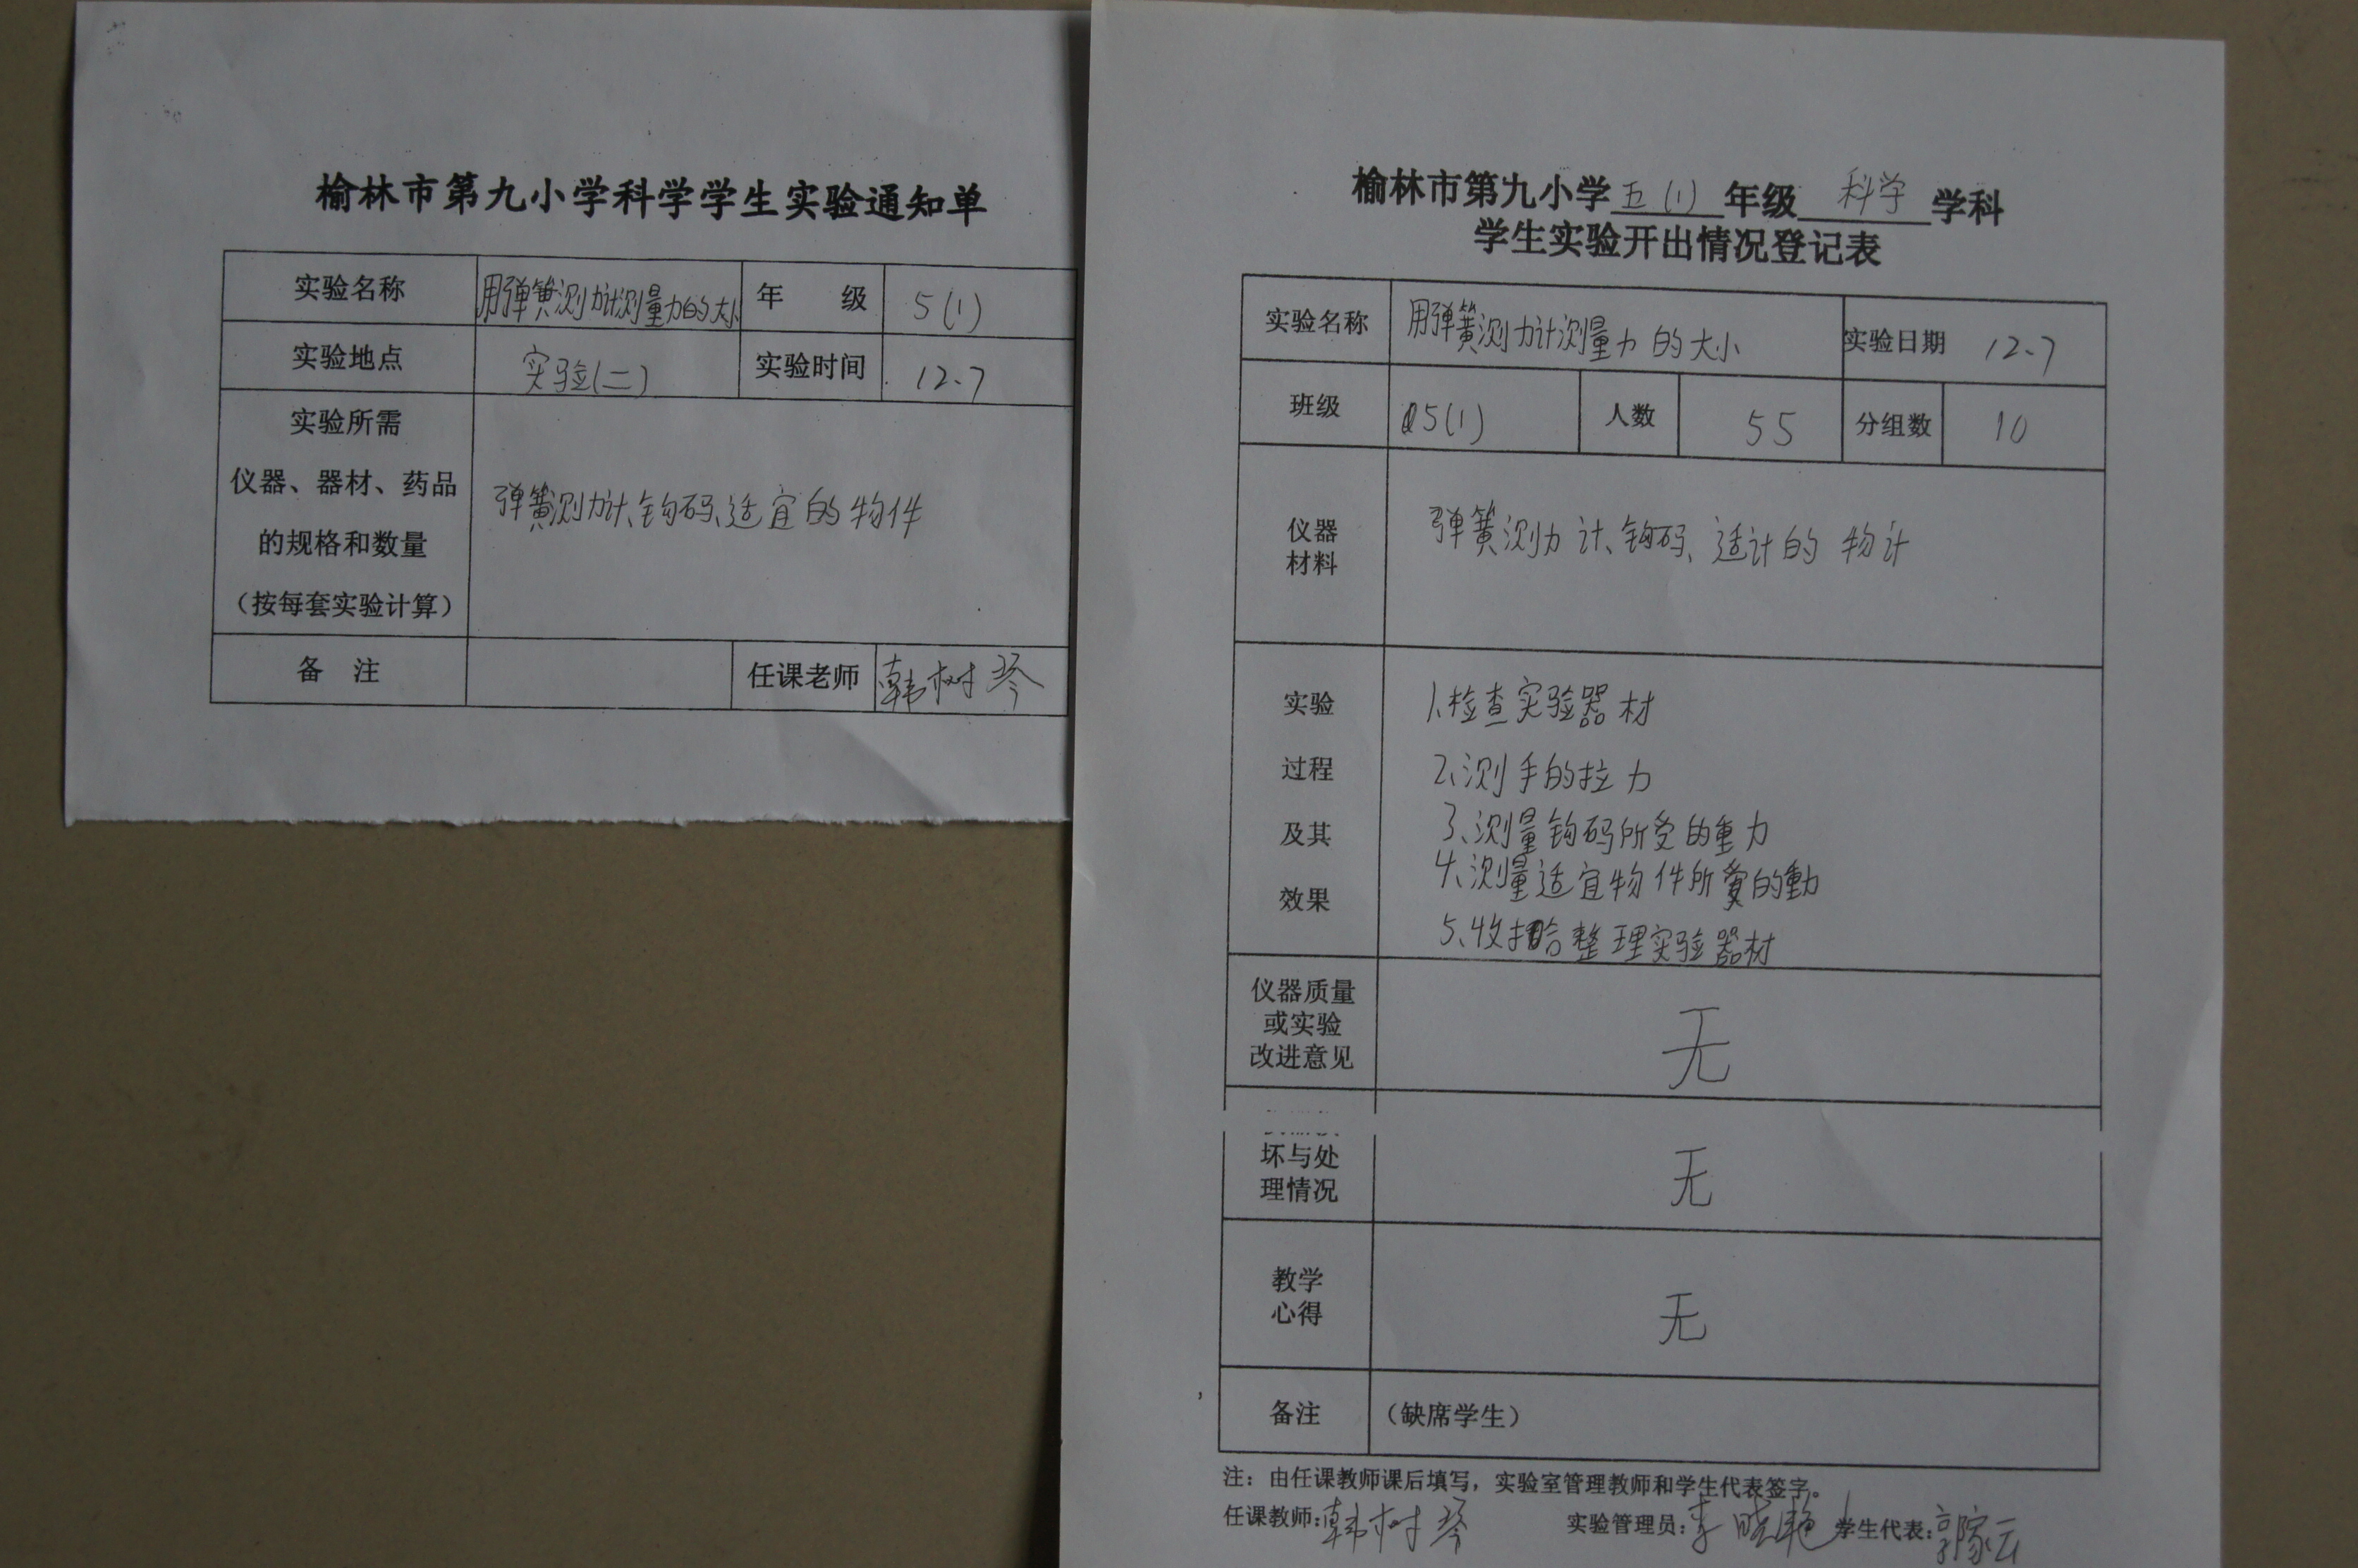 榆林市第九小学科学学生实验通知单
实验名称 用弹簧测力计测量力的大小 年 级 5(1)
实验地点 实验(二) 实验时间 12、7
实验所需
仪器、器材、药品
的规格和数量
(按每套实验计算)
弹簧测力计、钩码、适宜的物件
备 注 任课老师 韩树琴
榆林市第九小学五(1)年级 科学 学科
学生实验开出情况登记表
实验名称 用弹簧测力计测量力的大小 实验日期 12、7
班级 5(1) 人数 55 分组数 10
仪器
材料
弹簧测力计、钩码、适计的物计
实验
过程
及其
效果
1、检查实验器材
2、测手的拉力
3、测量钩码所受的重力
4、测量适宜物件所受的重力
5、收拾整理实验器材
仪器质量
或实验
改进意见
无
坏与处
理情况
无
教学
心得
无
备注 (缺席学生)
注:由任课教师课后填写,实验室管理教师和学生代表签字。
任课教师:韩树琴 实验管理员:李晓艳 学生代表:郭家云